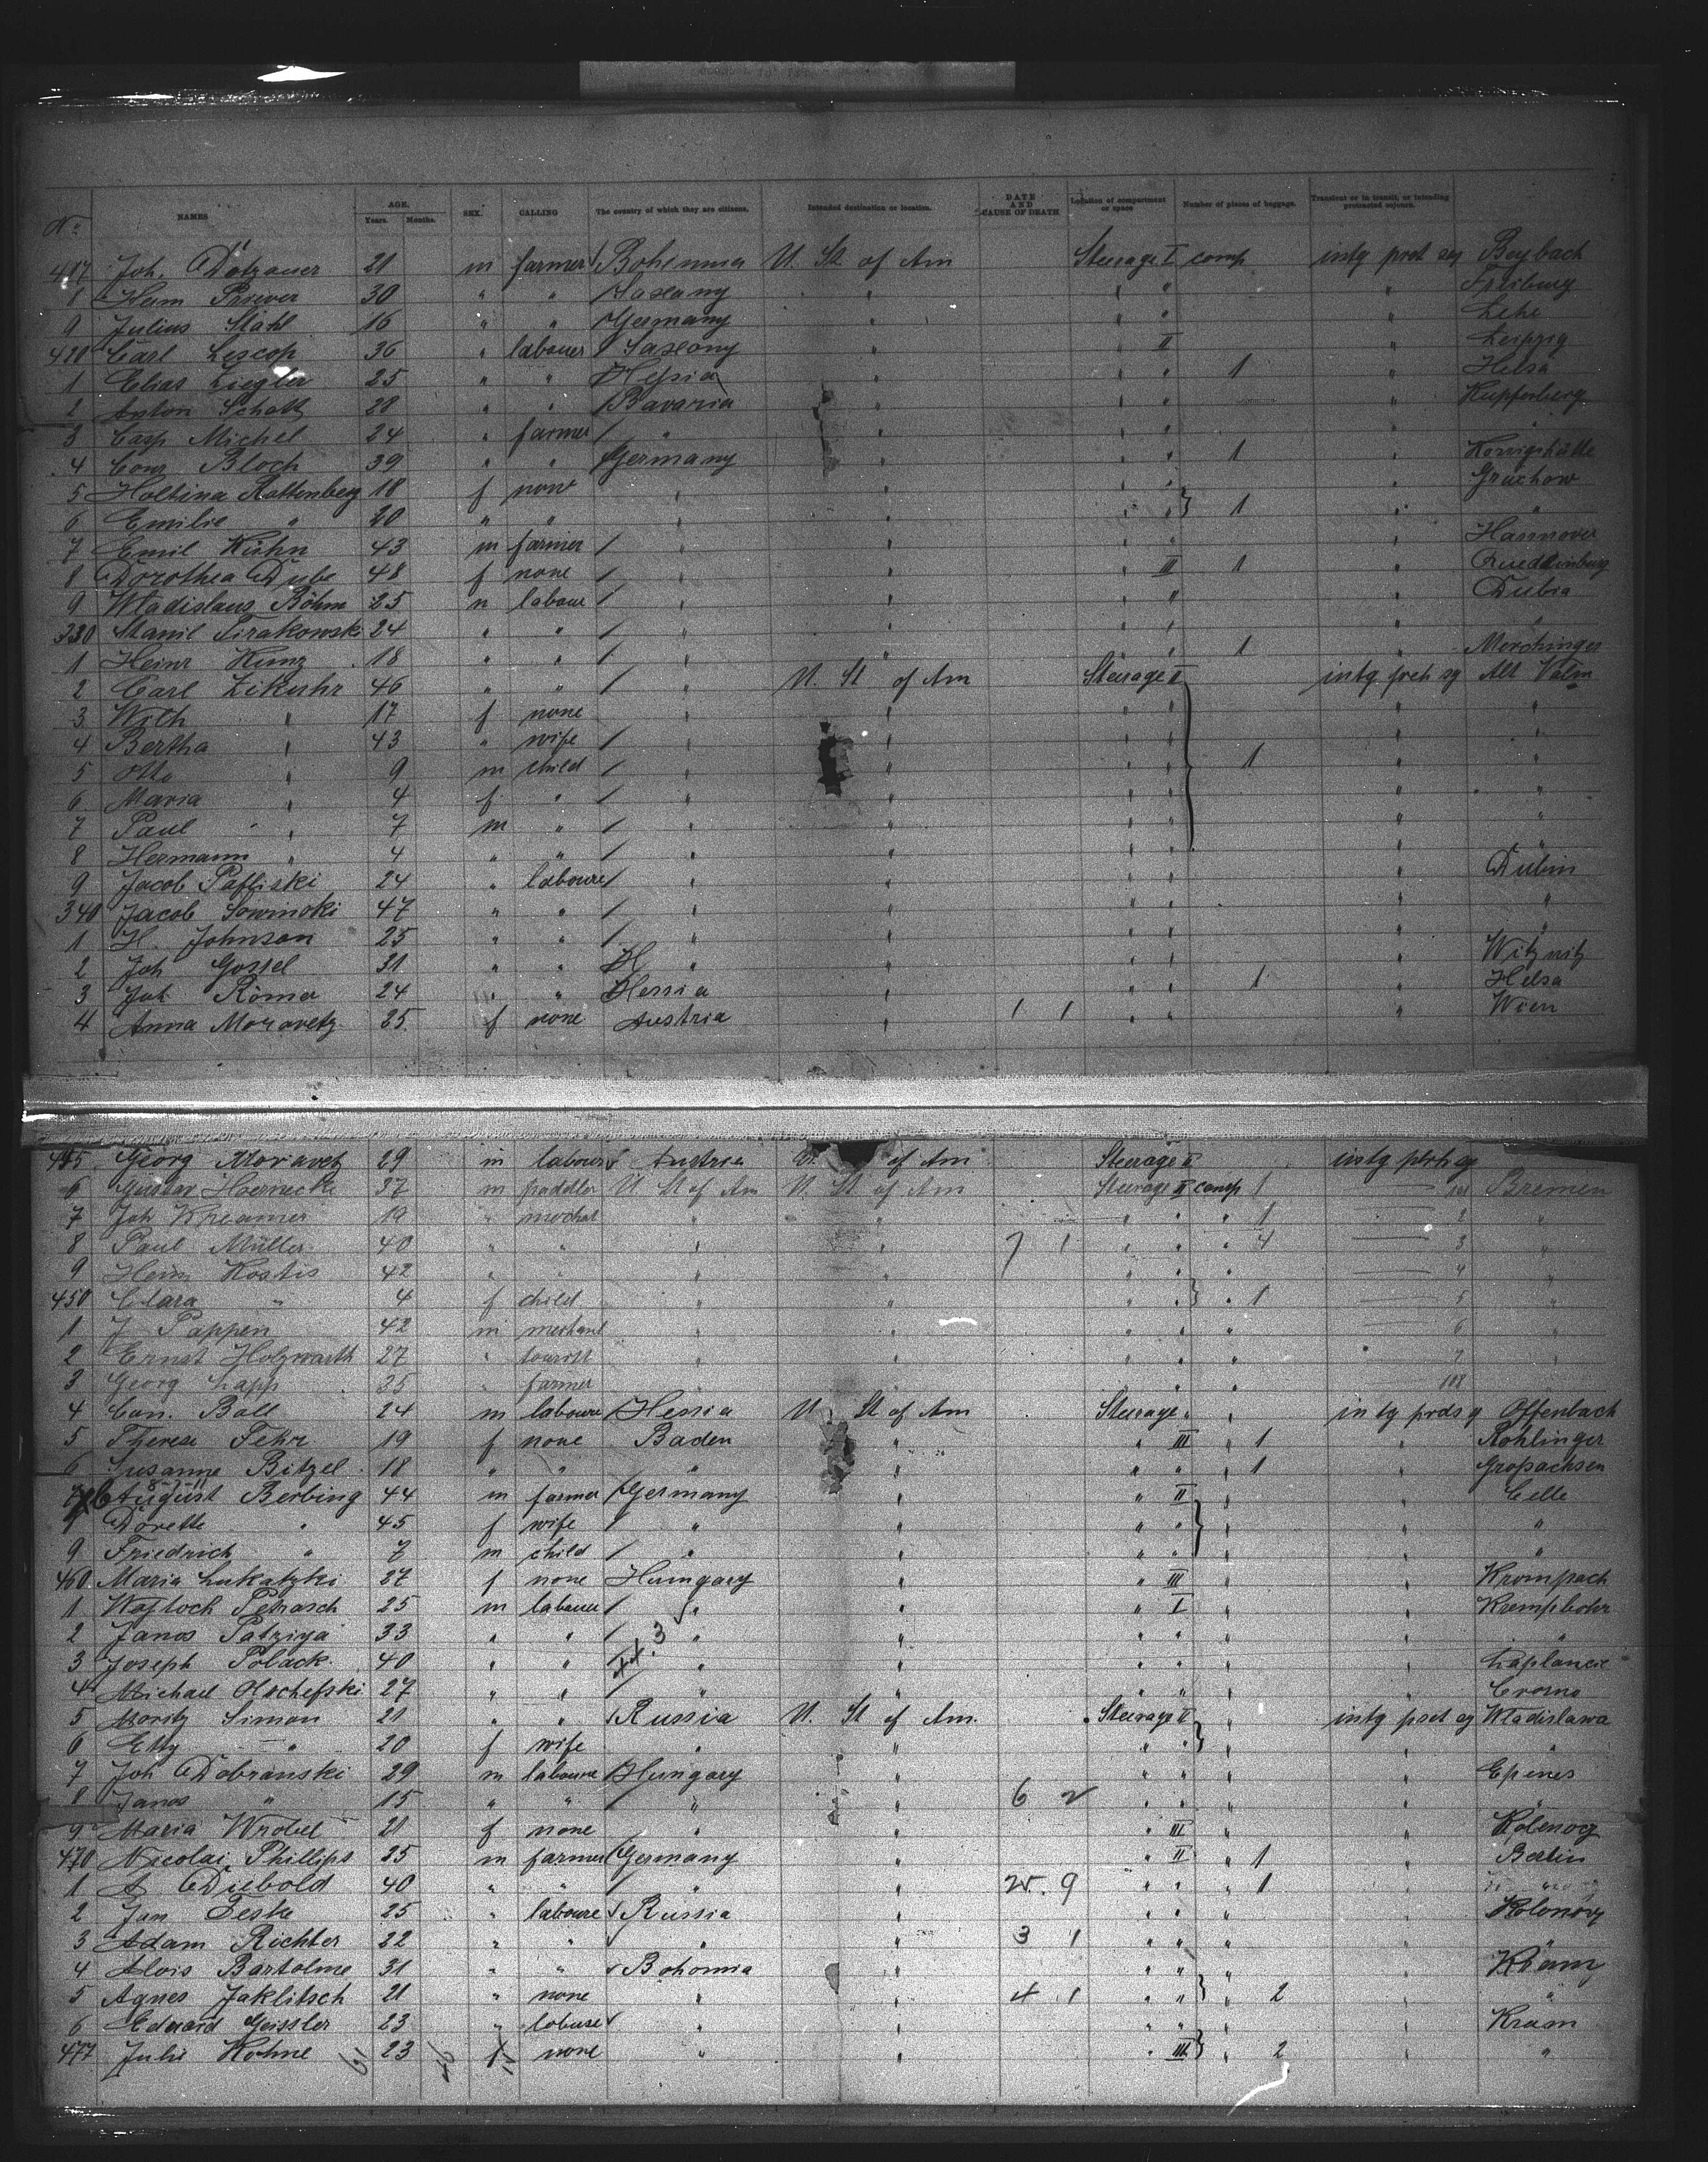 No. NAMES AGE. Years. Months. SEX. CALLING The country of which they are citizens. Intended destination or location. DATE AND CAUSE OF DEATH Location of compartment or space Number of pieces of baggage. Transient or in transit, or intending protracted sojourn.
417 Joh. Dotzauer 21 m farmer Bohemia U. St. of Am Steerage I comp intg prot sej
8 30 " " Saxony " " " " Freiburg
9 Julius Stahl 16 " " Germany " " " " Lehe
420 Carl 36 " labouer Saxony " " II " Leipzig
1 Elias Ziegler 25 " " Hessia " " " 1 " Helsa
2 Anton Schott 28 " " Bavaria " " " " Kupferberg
3 Casp Michel 24 " farmer " " " " " "
4 Conr Bloch 39 " " Germany " " " 1 " Königshütte
5 Rottenberg 18 f none " " " " 1 " Gruchow
6 Emilie " 20 " " " " " " " "
7 Emil Kühn 43 m farmer " " " " " Hannover
8 Dorothea Dube 48 f none " " " III 1 " Quedlinburg
9 Wladislaus Böhm 25 m laboue " " " " " Dubia
330 Stanil Sirakowski 24 " " " " " " " "
1 Heinr Kunz 18 " " " " " " 1 " Morchinger
2 Carl Zikuhr 46 " " " U. St of Am Steerage II intg prot sej Alt Valm
3 " 17 f none " " " " " "
4 Bertha " 43 " wife " " " " " "
5 Otto " 9 m child " " " " 1 " "
6 Maria " 4 f " " " " " " "
7 Paul " 7 m " " " " " " "
8 Hermann " 4 " " " " " " " "
9 Jacob 24 " laboure " " " " " Dubin
340 Jacob Sowinski 47 " " " " " " " "
1 H. Johnson 25 " " " " " " " "
2 Joh Gossel 31 " " H " " " " " Witznitz
3 Joh Römer 24 " " Hessia " " " 1 " Helsa
4 Anna Moravetz 25 f none Austria " 1 1 " " " Wien
445 Georg Moravetz 29 m laboure Austria U. of Am Steerage II intg prot sej
6 Gustav Hoernecke 37 m paddler U St of Am U. St of Am Steerage II comp 1 101 Bremen
7 Joh Kreamer 19 " " " " " " 1 2 "
8 Paul Müller 40 " " " " 7 1 " " " 4 3 "
9 Heinr Kostis 42 " " " " " " " 4 "
450 Clara " 4 f child " " " " " 1 5 "
1 J Pappen 42 m " " " " " 6 "
2 Ernst Holzwarth 27 " tourist " " " " " 7 "
3 Georg Lapp 35 " farmer " " " " " 108
4 Con. Ball 24 m laboure Hessia U. St of Am Steerage " " Offenbach
5 Therese Fehr 19 f none Baden " " III " 1 " Rohlinger
6 Susanne Bitzel 18 " " " " " " 1 " Grossachsen
7 August Berbing 44 m farmer Germany " " II " " Celle
8 Dorette " 45 f wife " " " " " " "
9 Friedrich " 7 m child " " " " " " "
460 Maria Lukatzki 27 f none Hungary " " III " " Krompach
1 Petrasch 25 m labouer " " " I " "
2 Janos Patziga 33 " " " " " " " " "
3 Joseph Polack 40 " " " " " " " "
4 Michael Olschefski 27 " " " " " " " "
5 Moritz Simon 21 " " Russia U. St of Am. Steerage II " intg prot sej Wladislawa
6 Etty " 20 f wife " " " " " " "
7 Joh Dobranski 29 m laboure Hungary " " " " " Eperies
8 Janos " 15 " " " " 6 2 " " " " "
9 Maria Wrobel 21 f none " " " III " "
470 Nicolai Phillips 25 m farmer Germany " " II " 1 " Berlin
1 A Diebold 40 " " " " 25. 9 " " " 1 "
2 Jan Teske 25 " laboure Russia " " " " "
3 Adam Richter 22 " " " " 3 1 " " " " "
4 Alois Bartolme 31 " " Bohomia " " " " "
5 Agnes Jaklitsch 21 " none " " 4 1 " " " 2 " "
6 Eduard Geissler 23 " " " " " " Kram
477 Julie Kohne 23 f none " " " III " 2 " "